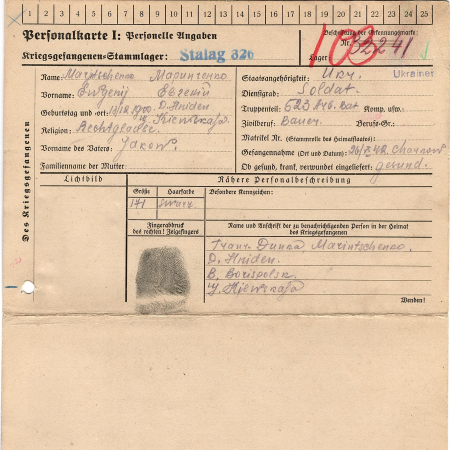 1 2 3 4 5 6 7 8 9 10 11 12 13 14 15 16 17 18 19 20 21 22 23 24 25
Personalkarte I: Personelle Angaben
Kriegsgefangenen-Stammlager: Stalag 326
Beschriftung der Erkennungsmarke
Nr. 32241
Lager:
Des Kriegsgefangenen
Name: Marintschenko Маринченко
Vorname: Ewgenij Евгений
Geburtstag und -ort: 1900. D. Hniden.
Religion: Rechtgläube. Y. Kiewskaja.
Vorname des Vaters: Jakow.
Familienname der Mutter
Staatsangehörigkeit: Ukr. Ukrainer
Dienstgrad: Soldat.
Truppenteil: 623 Bat Komp. usw.
Zivilberuf: Bauer. Berufs-Gr.:
Matrikel Nr. (Stammrolle des Heimatstaates):
Gefangennahme (Ort und Datum): 42. Charkow
Ob gesund, krank, verwundet eingeliefert: gesund.
Lichtbild
Nähere Personalbeschreibung
Größe Haarfarbe Besondere Kennzeichen:
171 Swarz
Fingerabdruck
des rechten! Zeigefingers
Name und Anschrift der zu benachrichtigenden Person in der Heimat
des Kriegsgefangenen
Marintschenko,
D. Hniden.
B. Borispolsk.
Y. Kiewskaja
Wenden!